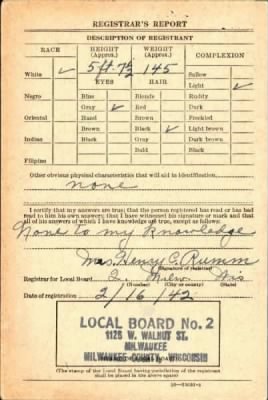 REGISTRAR'S REPORT
DESCRIPTION OF REGISTRANT
RACE HEIGHT (Approx.) WEIGHT (Approx.) COMPLEXION
5 ft. 7½ 145
White ✓ EYES HAIR Sallow
Light ✓
Negro Blue Blonde Ruddy
Gray ✓ Red Dark
Oriental Hazel Brown Freckled
Brown Black ✓ Light brown
Indian Black Gray Dark brown
Bald Black
Filipino
Other obvious physical characteristics that will aid in identification
none
I certify that my answers are true; that the person registered has read or has had
read to him his own answers; that I have witnessed his signature or mark and that
all of his answers of which I have knowledge are true, except as follows:
None to my knowledge
Mrs. Henry C. Rumm
(Signature of registrar)
Registrar for Local Board 2 Milw. Wis
(Number) (City or county) (State)
Date of registration 2/16/42
LOCAL BOARD No. 2
1126 W. WALNUT ST.
MILWAUKEE
MILWAUKEE COUNTY, WISCONSIN
(The stamp of the Local Board having jurisdiction of the registrant
shall be placed in the above space)